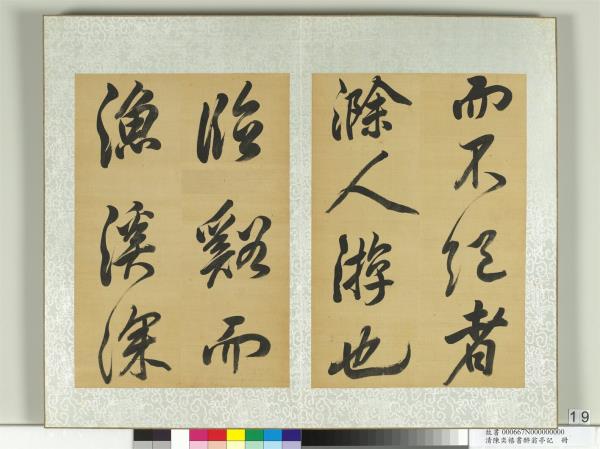 而不絕者
滁人游也
臨谿而
漁溪深
19
故書000667N000000000
清陳奕禧書醉翁亭記 冊